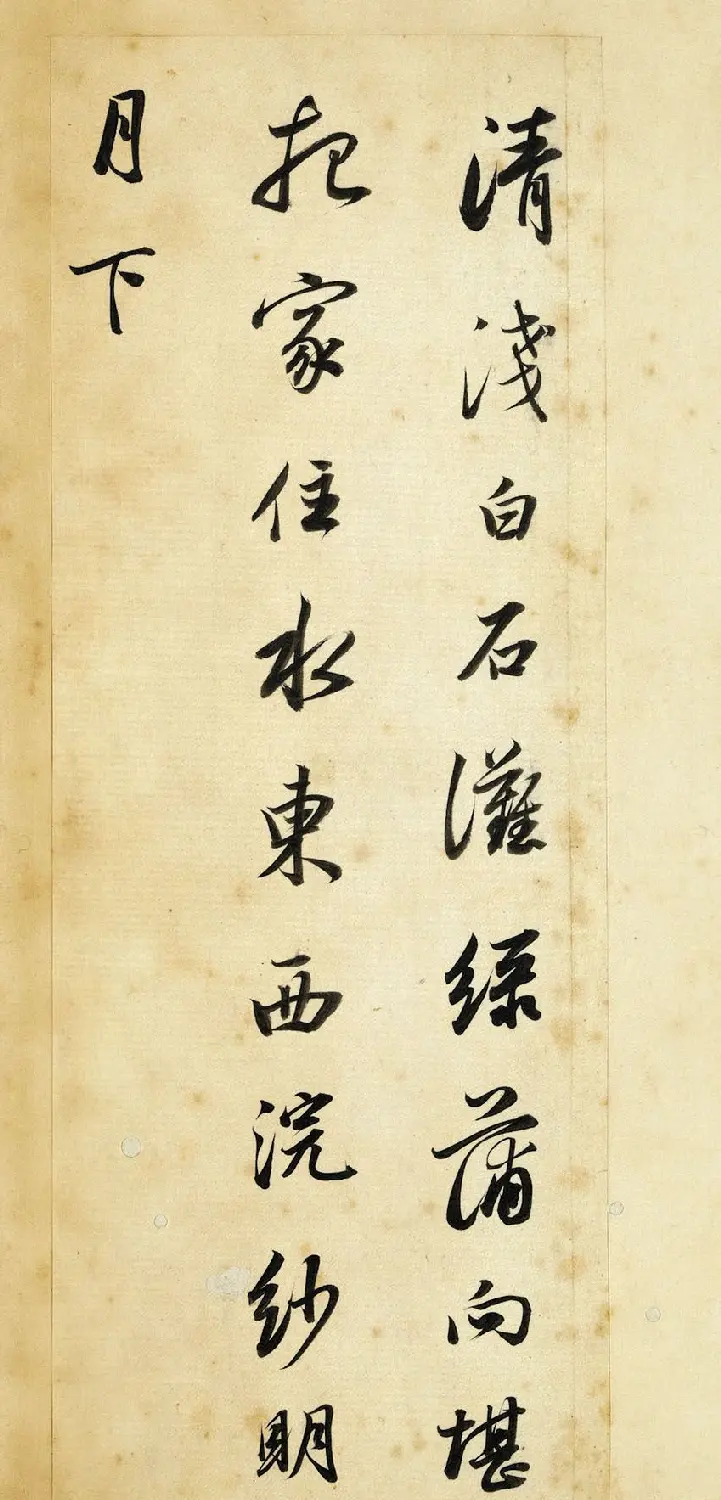 清淺白石灘綠蒲向堪
把家住水東西浣紗明
月下